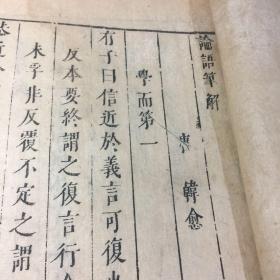 論語筆解
韓愈
學而第一
有子曰信近於義言可復也
反本要終謂之復言行合
未孚非反覆不定之謂
恭近